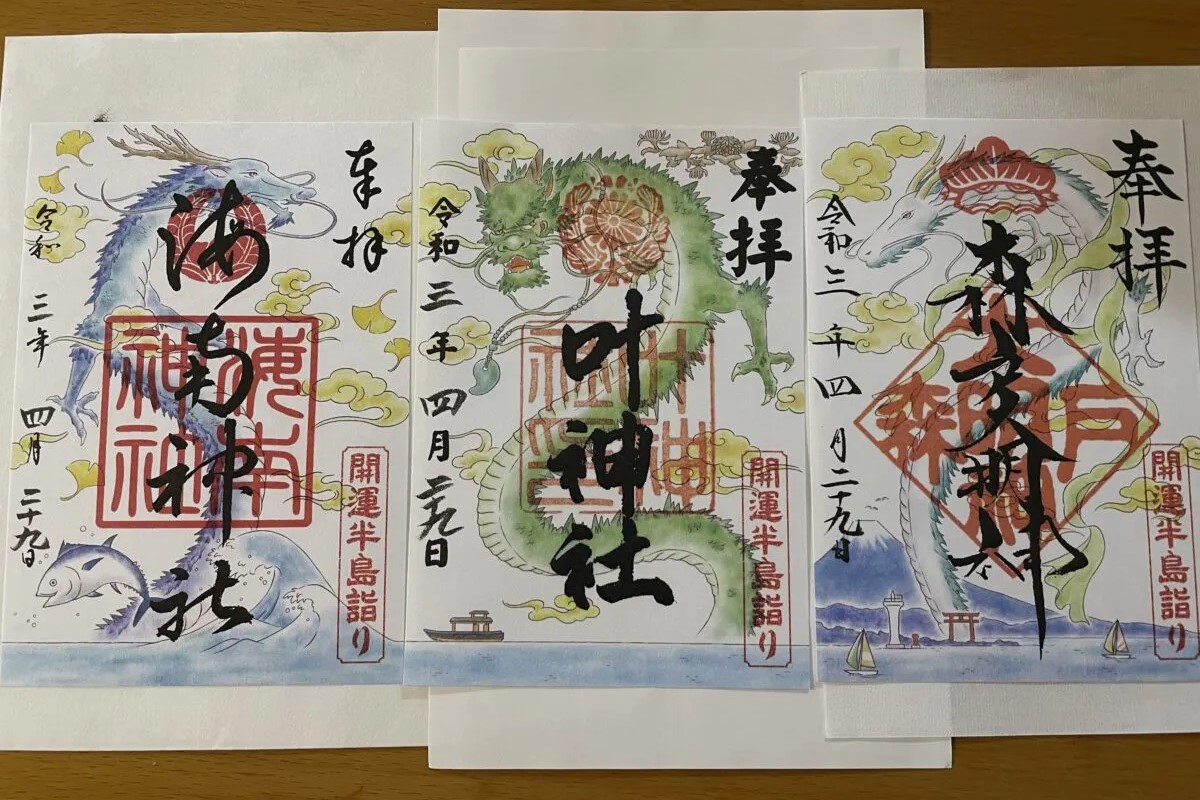 奉拝
海南神社
海南
神社
令和三年四月二十九日
開運半島詣り
奉拝
叶神社
令和三年四月二九日
開運半島詣り
奉拝
森戸大明神
令和三年四月二十九日
開運半島詣り